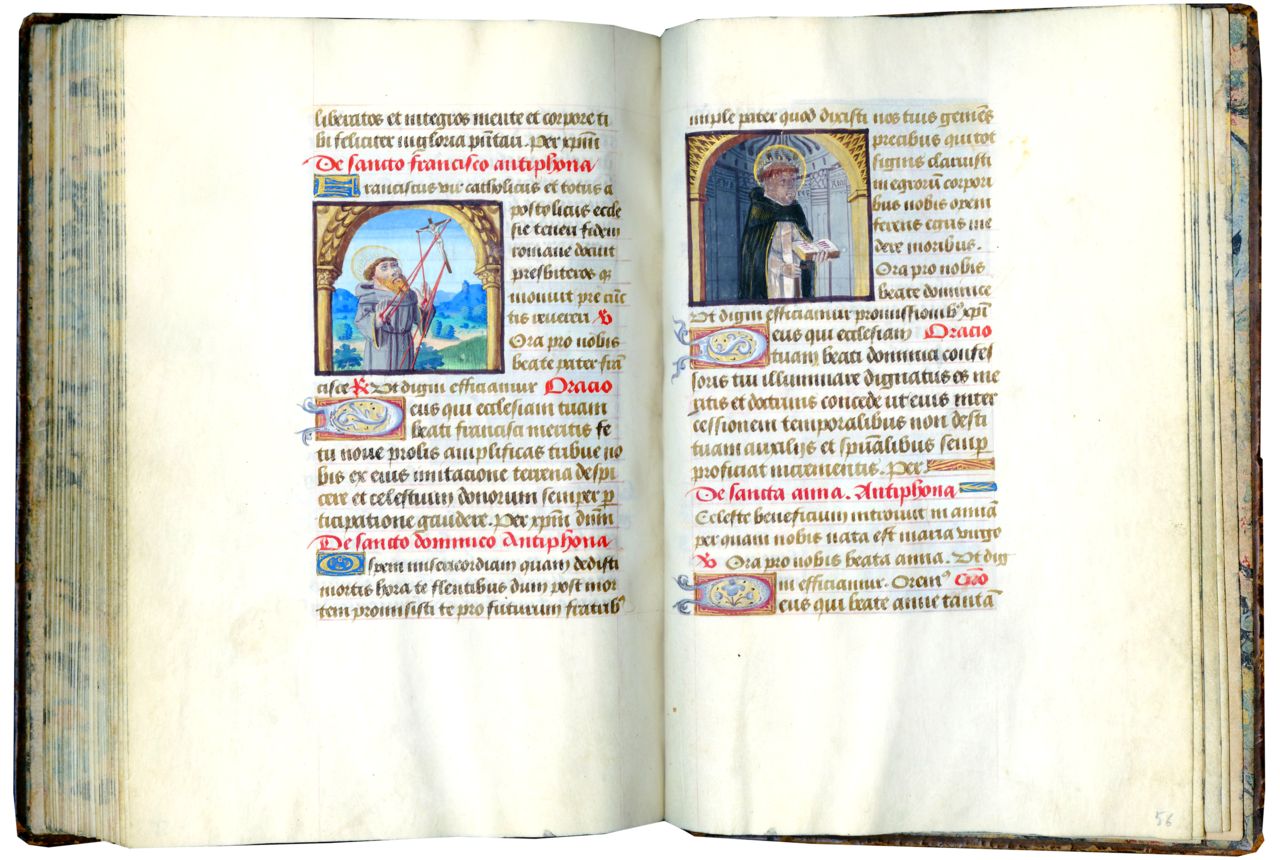 liberatos et integros mente et corpore ti
bi feliciter in gloria pñtari. Per xpm̄
De sancto francisco antiphona
Franciscus vir catholicus et totus a
postolicus eccle
sie teneri fidem
romane docuit
presbiteros q̄
monuit pre cūc
tis revereri ℣
Ora pro nobis
beate pater fran
cisce ℟ Vt digni efficiamur Oracio
Deus qui ecclesiam tuam
beati francisci meritis fe
tu noue prolis amplificas tribue no
bis ex eius imitacione terrena despi
cere et celestium donorum semper p̱
ticipatione gaudere. Per xpm̄ dn̄m
De sancto dominico Antiphona
O spem misericordiam quam dedisti
mortis hora te flentibus dum post mor
tem promisisti te pro futurum fratribꝰ
imple pater quod dixisti nos tuis
precibus qui tot
signis claruisti
in egrorū corpori
bus nobis opem
ferens egris me
dere moribus.
Ora pro nobis
beate dominice
Vt digni efficiamur promissionibꝰ xpī
Deus qui ecclesiam Oracio
tuam beati dominici confes
soris tui illuminare dignatus es me
ritis et doctrinis concede ut eius inter
cessionem temporalibus non desti
tuam auxilijs et spūalibus semp̱
proficiat incrementis. Per
De sancta anna. Antiphona
Celeste beneficium introiuit in annā
per quam nobis nata est maria virgo
℣ Ora pro nobis beata anna. Vt dig
ni efficiamur. Oremꝰ Oro
Deus qui beate anne tantā
56